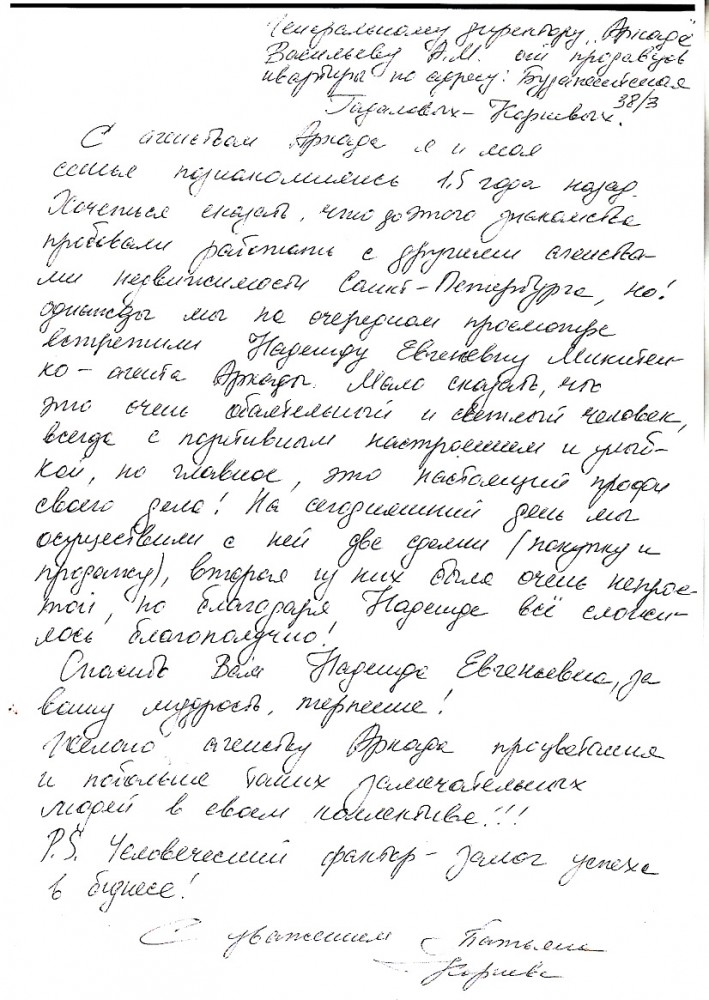 Генеральному директору „Аркада"
Васильеву А.М. от продавцов
квартиры по адресу: Будапештская
38/3
Гадаловых-Корневых.
С агенством Аркада я и моя
семья познакомились 1,5 года назад.
Хочеться сказать, что до этого знакомства
пробовали работать с другими агенства-
ми недвижимости Санкт-Петербурга, но!
однажды мы на очередном просмотре
встретили Надежду Евгеневну Микитен-
ко - агента Аркады. Мало сказать, что
это очень обаятельный и светлый человек,
всегда с позитивным настроением и улыб-
кой, но главное, это настоящий профи
своего дела! На сегодняшний день мы
осуществили с ней две сделки (покупку и
продажу), вторая из них была очень непрос-
той, но благодаря Надежде всё сложи-
лось благополучно!
Спасибо Вам Надежда Евгеньевна, за
вашу мудрость, терпение!
Желаю агенству Аркада процветания
и побольше таких замечательных
людей в своем коллективе!!!
P.S. Человеческий фактор - залог успеха
в бизнесе!
С уважением Татьяна
Корнева